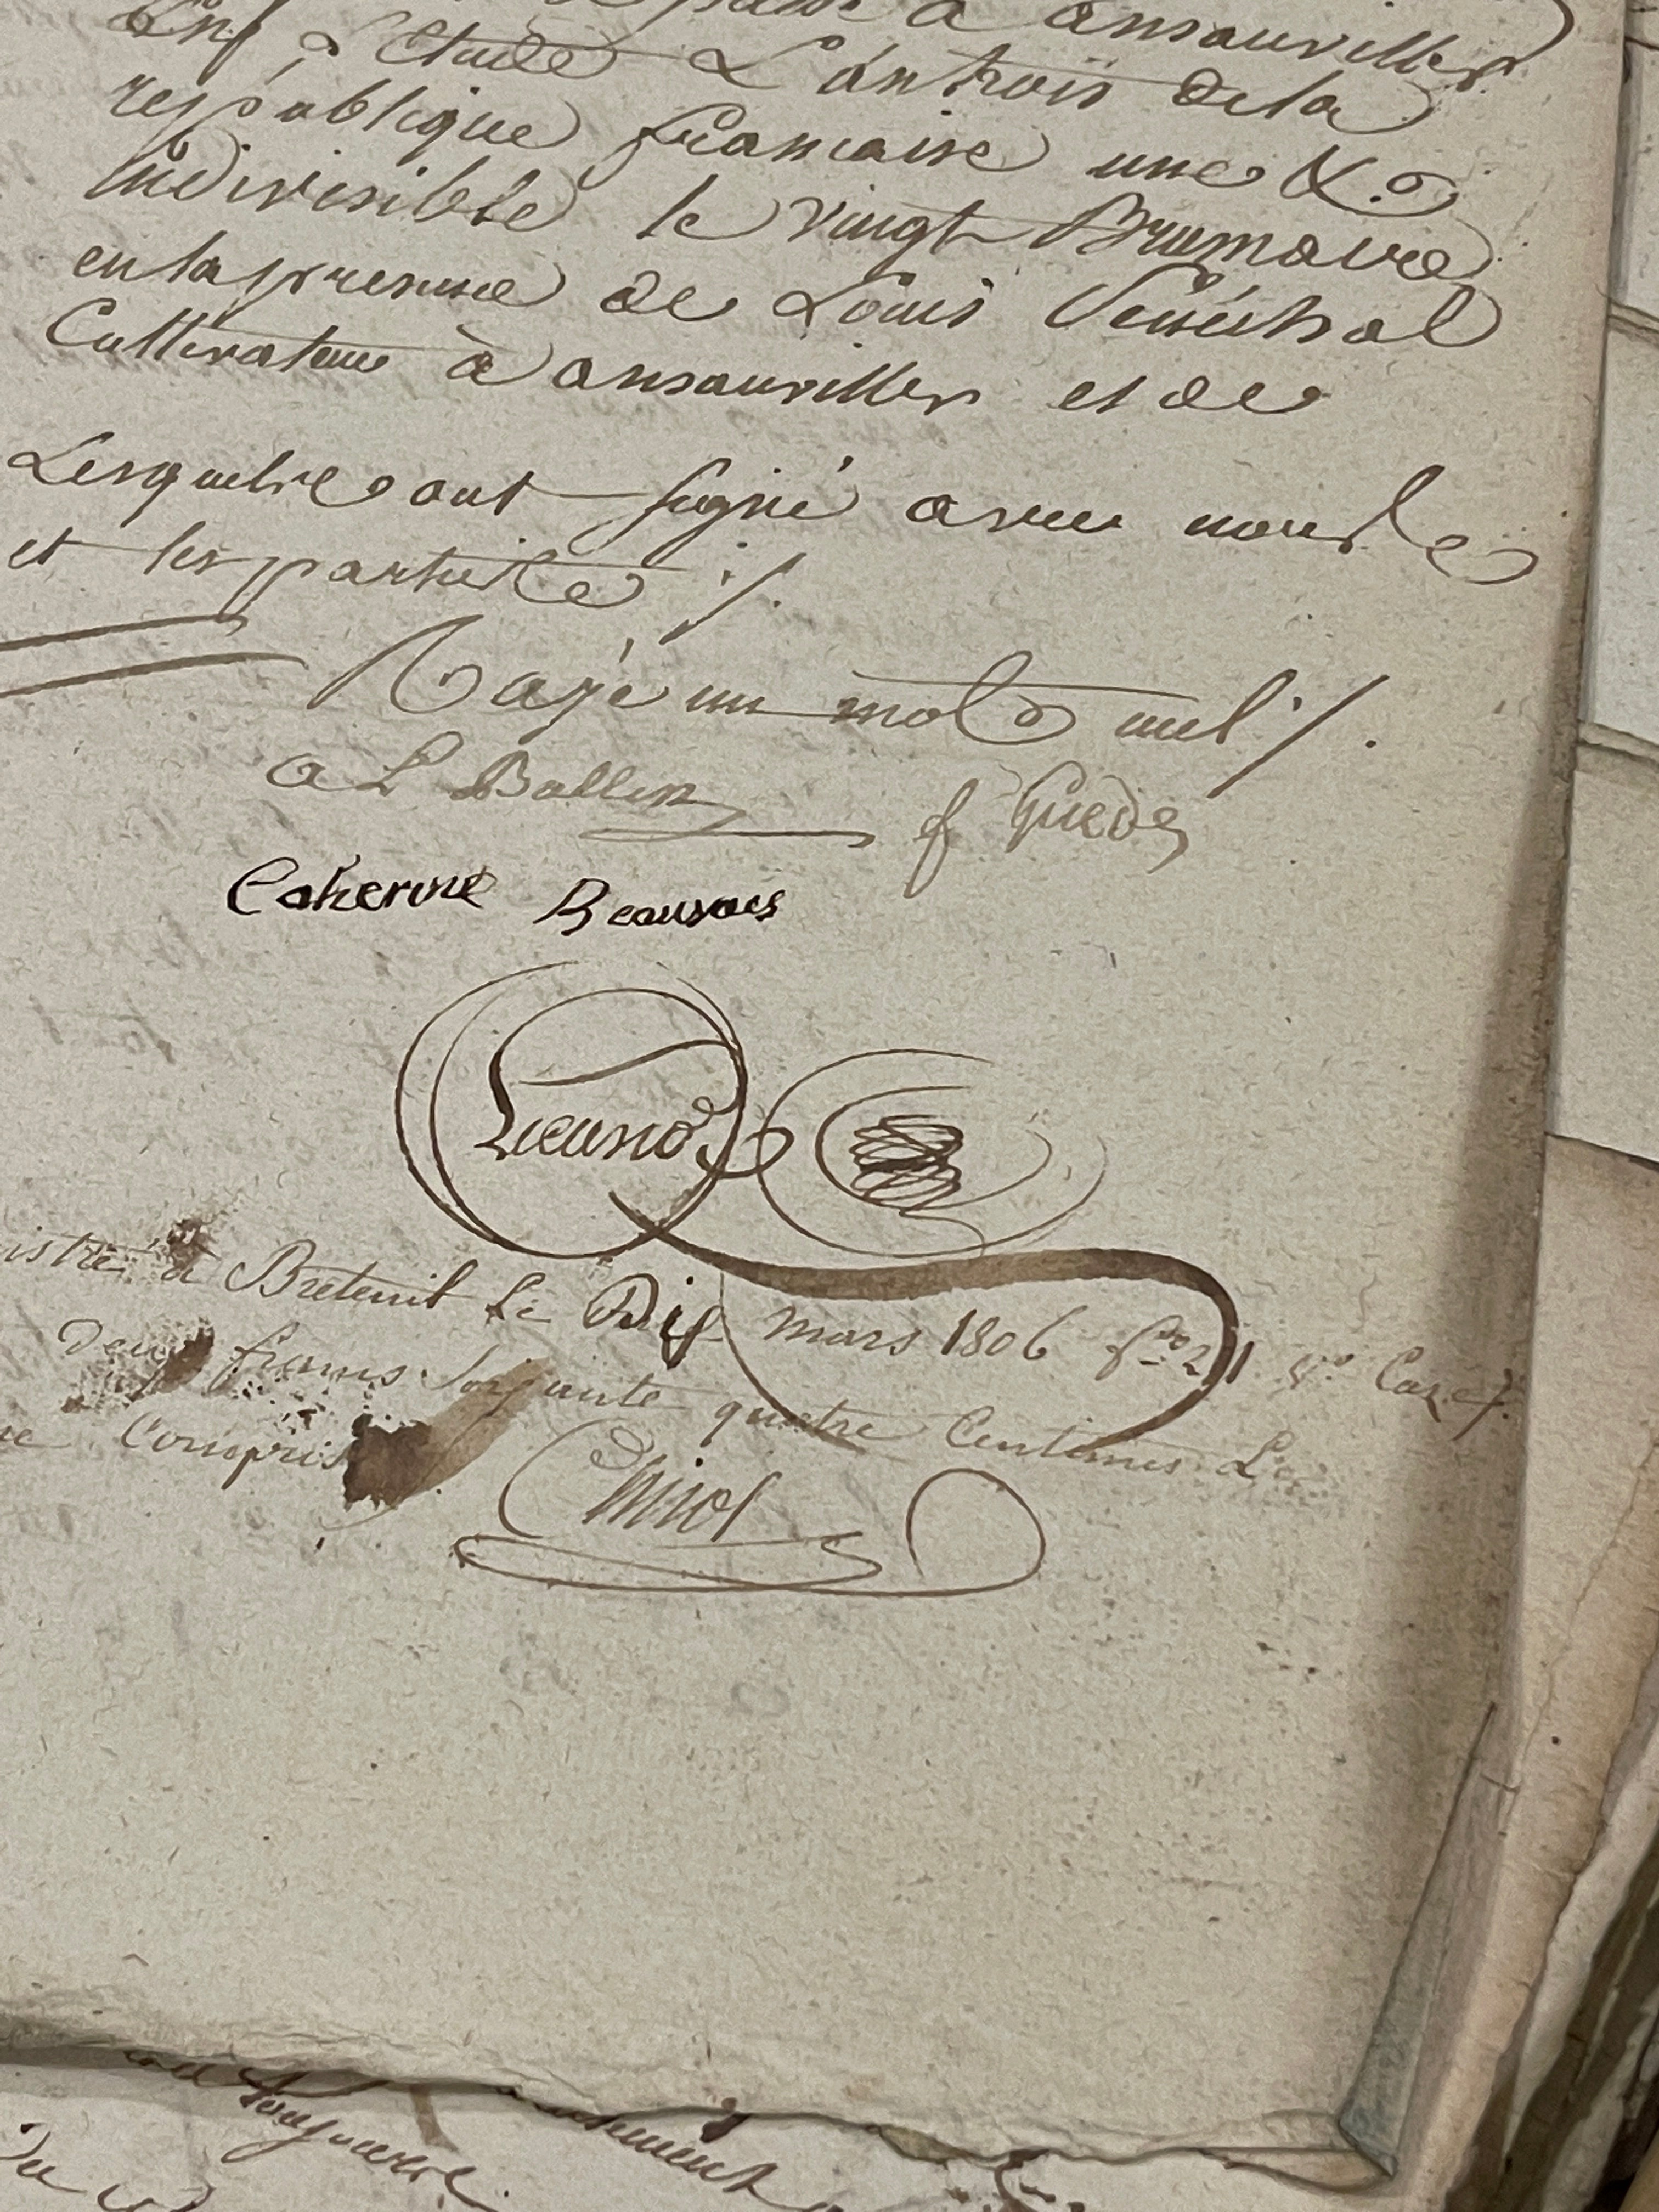 passé à ansauviller
En L'Etude L'an trois de la
republique francaise une &
indivisible le vingt Brumaire
en la presence de Louis Senéchal
Cultivateur à ansauviller et de
Lesquels ont signé avec nous
et les parties ./.
Rayé un mot nul ./.
a L Ballin f Guede
Catherine Beauvais
istré a Breteuil Le Dix mars 1806 fo 211 vo Case
deux francs soixante quatre Centimes
Compris